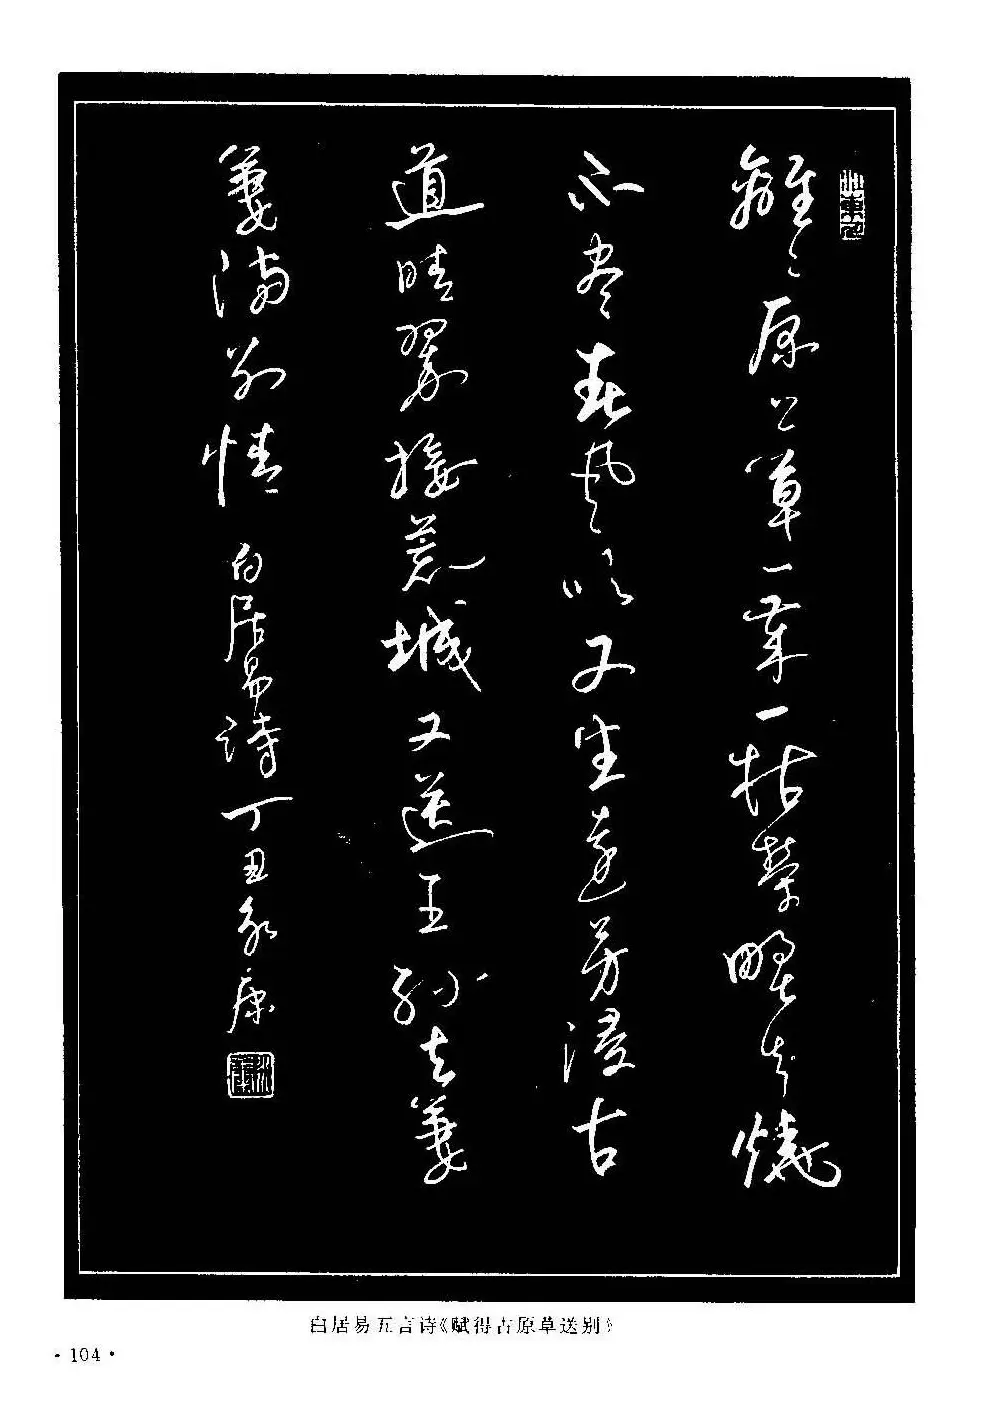 離〻原上草一歲一枯榮野火燒
不尽春風吹又生遠芳侵古
道晴翠接荒城又送王孫去萋
萋滿别情 白居易诗丁丑永康
白居易五言诗《赋得古原草送别》
·104·